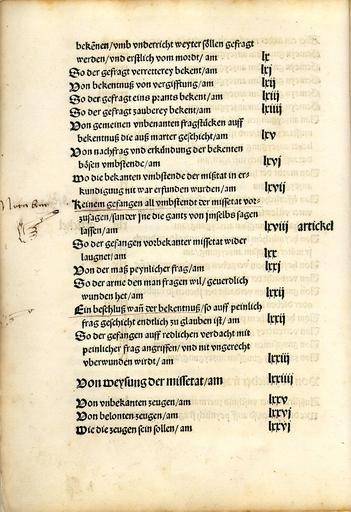 bekēnen/vmb vnderricht weyter söllen gefragt
werden/vnd erstlich vom mordt/ am lx
So der gefragt verretterey bekent/am lxj
Von bekentnuß von vergifftung/ am lxij
So der gefragt eins prants bekent/am lxiij
So der gefragt zauberey bekent/am lxiiij
Von gemeinen vnbenanten fragstücken auff
bekentnuß die auß marter geschicht/am lxv
Von nachfrag vnd erkündung der bekenten
bösen vmbstende/am lxvj
Wo die bekanten vmbstende der mißtat in er-
kundigung nit war erfunden wurden/am lxvij
Keinem gefangen all vmbstende der missetat vor-
zusagen/sunder jne die gantz von jmselbs sagen
lassen/am lxviij artickel
So der gefangen vorbekanter missetat wider
laugnet/am lxx
Von der maß peynlicher frag/am lxxj
So der arme den man fragen wil/geuerlich
wunden het/am lxxij
Ein beschluß wañ der bekentnuß/so auff peinlich
frag geschicht endtlich zu glauben ist/am lxxij
So der gefangen auff redlichen verdacht mit
peinlicher frag angriffen/vnd nit vngerecht
vberwunden wirdt/am lxxiij
Von weysung der missetat/am lxxiiij
Von vnbekanten zeugen/am lxxv
Von belonten zeugen/am lxxvj
Wie die zeugen sein sollen/am lxxvj